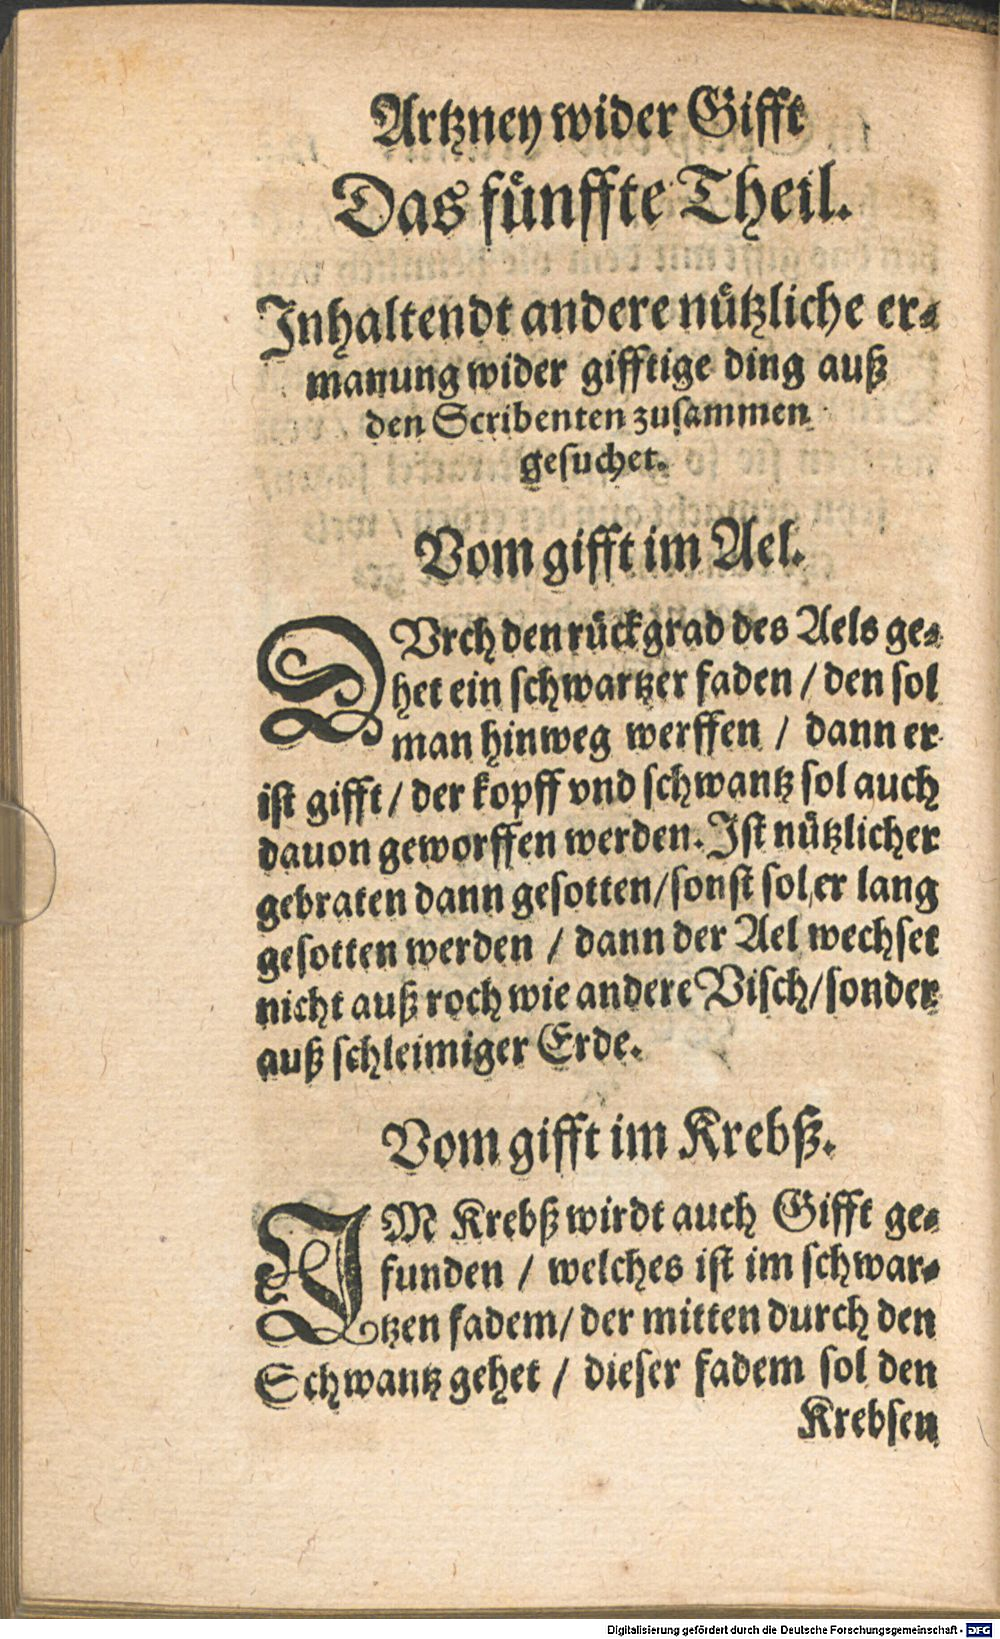 Artzney wider Gifft
Das fünffte Theil.
Inhaltendt andere nützliche er-
manung wider gifftige ding auß
den Scribenten zusammen
gesuchet.
Vom gifft im Ael.
DVrch den rückgrad des Aels ge-
het ein schwartzer faden / den sol
man hinweg werffen / dann er
ist gifft / der kopff vnd schwantz sol auch
dauon geworffen werden. Ist nützlicher
gebraten dann gesotten / sonst sol er lang
gesotten werden / dann der Ael wechset
nicht auß roch wie andere Visch / sonder
auß schleimiger Erde.
Vom gifft im Krebß.
IM Krebß wirdt auch Gifft ge-
funden / welches ist im schwar-
tzen fadem / der mitten durch den
Schwantz gehet / dieser fadem sol den
Krebsen
Digitalisierung gefördert durch die Deutsche Forschungsgemeinschaft - DFG